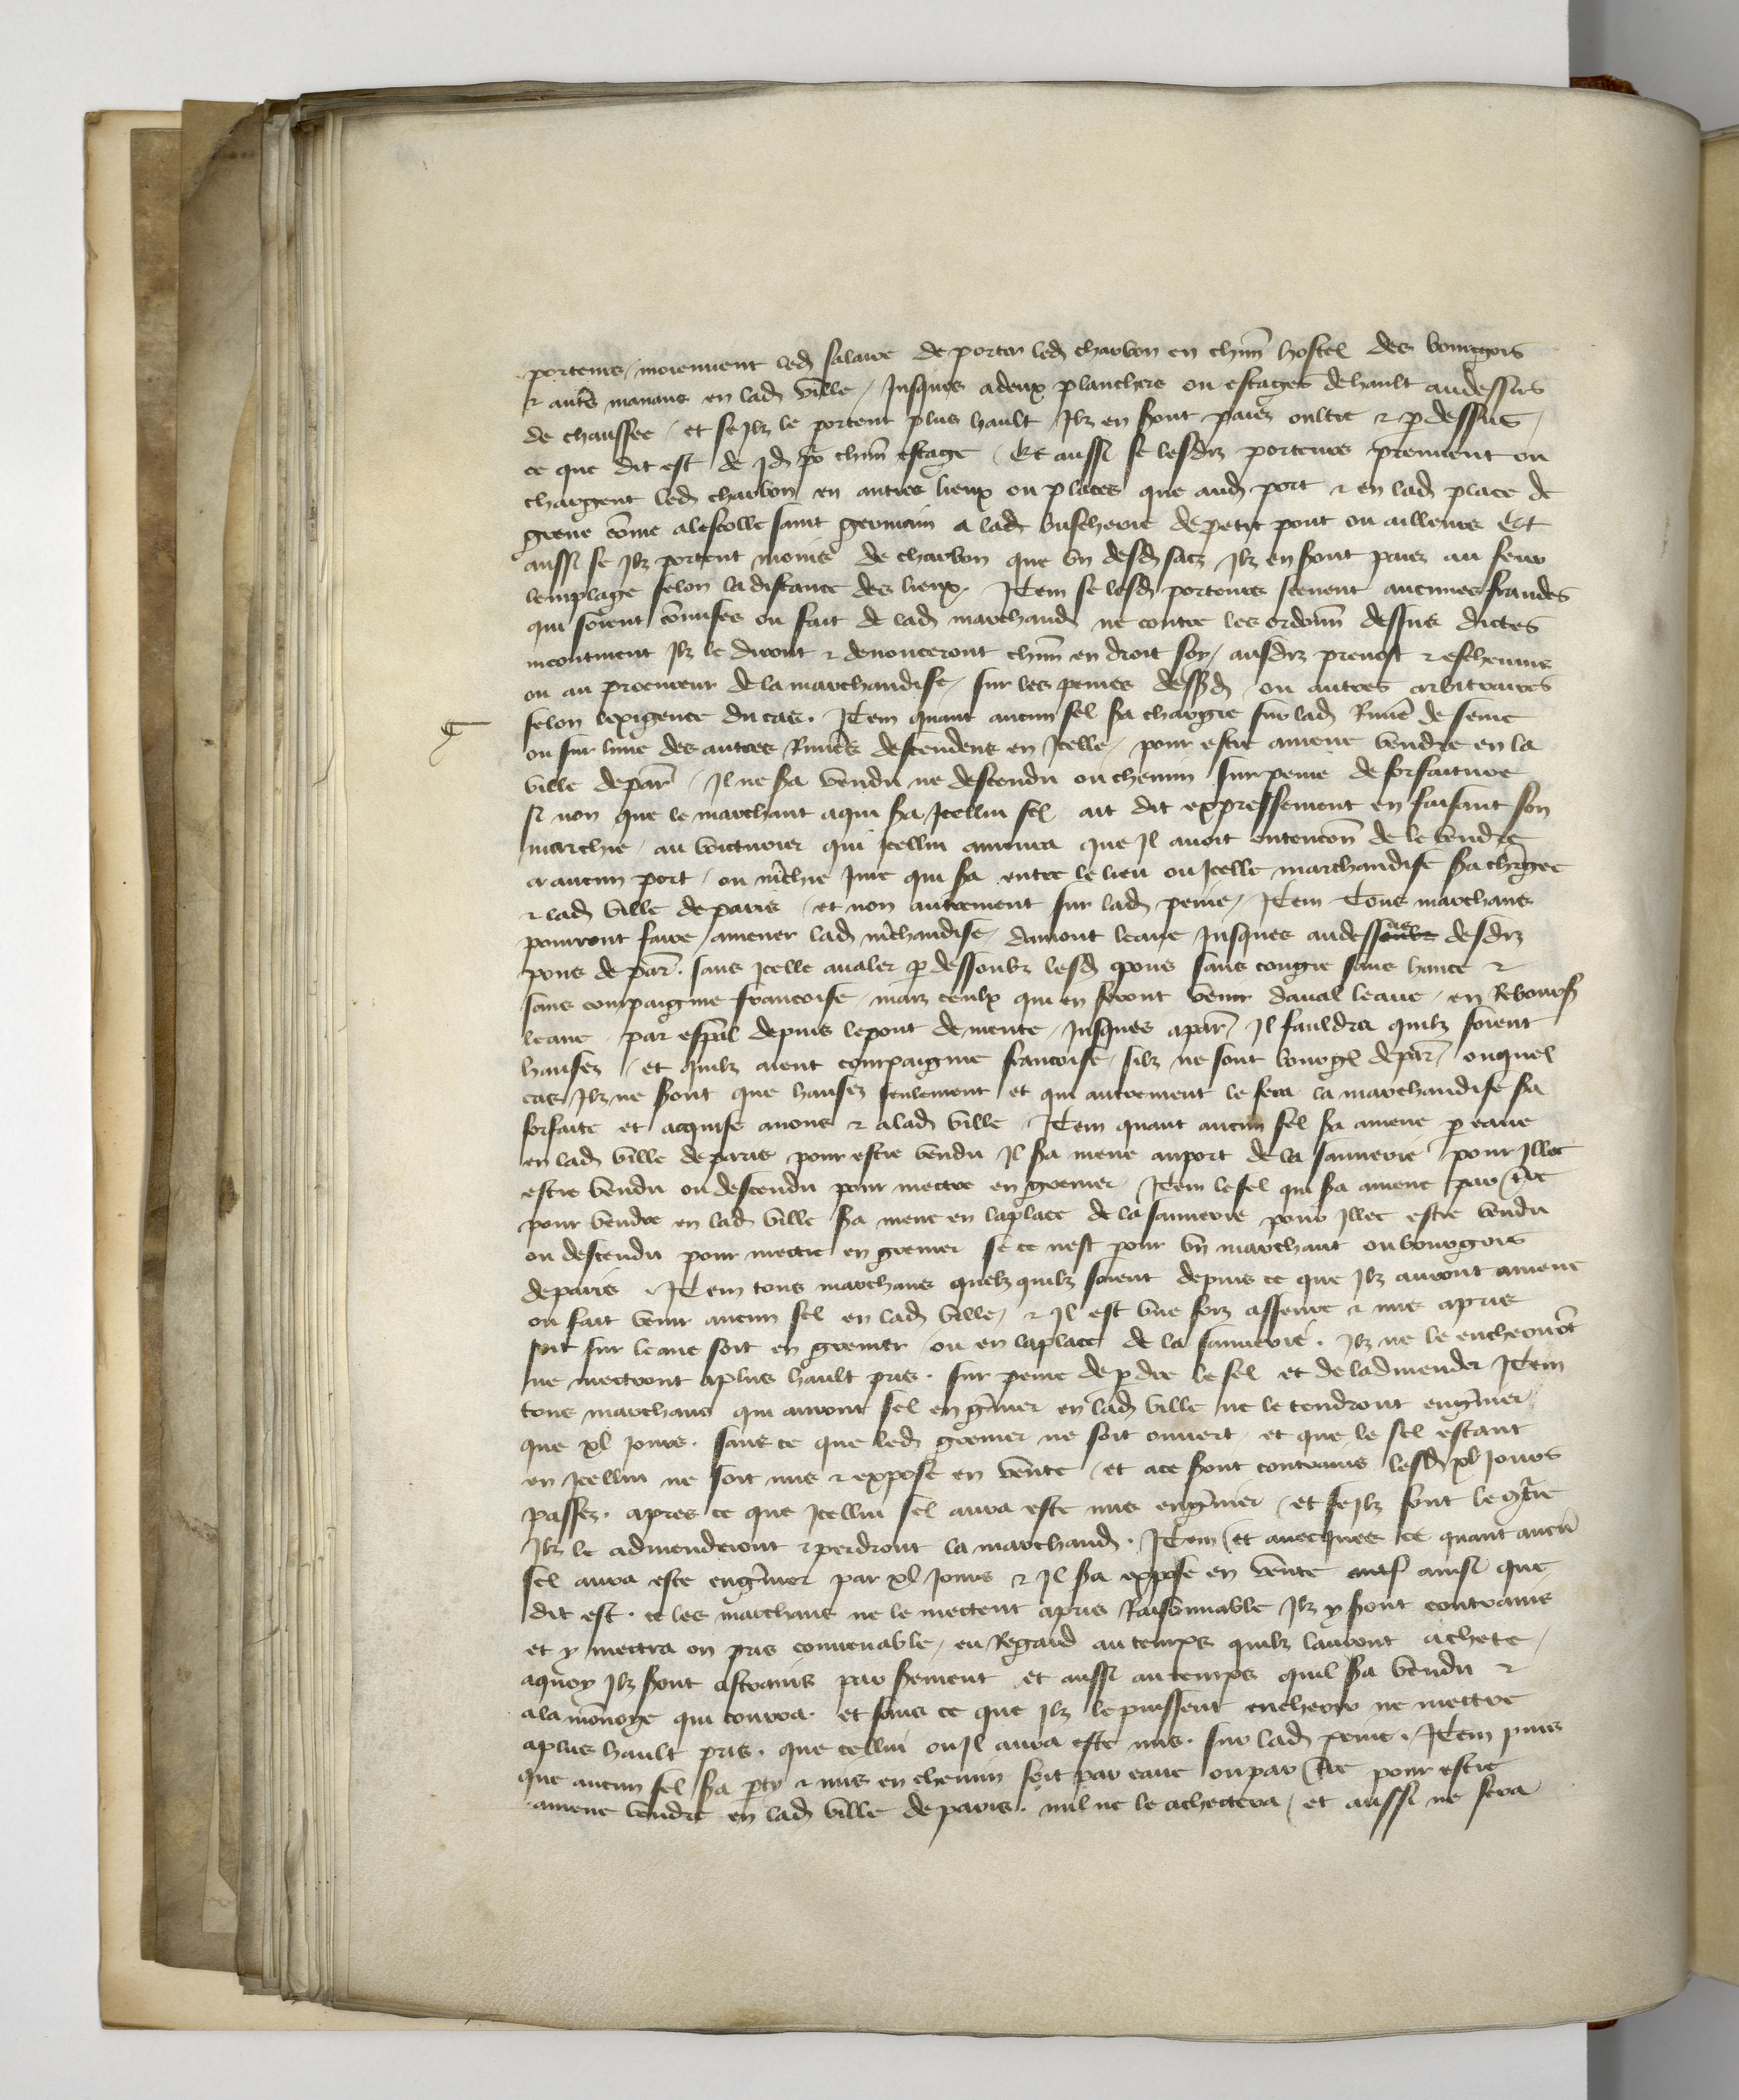 porteurs moiennent led salaire de porter led charbon en chun hostel des bourgois
& autres manans en lad ville / Jusques a deux planchers ou estages de hault au dessus
de chaussee / et se Ilz le portent plus hault / Ilz en sont paiez oultre & p dessus /
ce que dit est de Jd po chun estage / Et aussi se lesdiz porteurs prennent ou
chargent led charbon en autres lieux ou places que aud port & en lad place de
greue come alescolle saint germain a lad buscherie de petit pont ou ailleurs Et
aussi se Ilz portent moins de charbon que vn desd sacs Ilz en sont paiez au feur
lemplage selon la distance des lieux. Item se lesd porteurs scevent aucunes fraudes
qui soient comises ou fait de lad marchand ne contre les ordonn dessus dictes
incontinent Ilz le diront & denonceront chun en droit soy / ausdiz preuost & escheuins
ou au procureur de la marchandise / sur les peines dessusd ou autres arbitraires
selon lexigence du cas. Item quant aucun sel sa chargie sur lad Riuiere de seine
ou sur lune des autres Riuieres descendens en Icelle / pour estre amene vendre en la
ville de par / Il ne sa vendu ne descendu ou chemin sur peine de forfaiture
si non que le marchant a qui sa Icellui sel ait dit expressement en faisant son
marchie / au voicturier qui Icellui amenra que Il auoit entencon de le vendre
a aucun port / ou mchie Jure qui sa entre le lieu ou Icelle marchandise sa chgee
& lad ville de paris / et non autrement sur lad peine / Item Tous marchans
pourront faire amener lad mchandise / damont leaue Jusques au dessus desdiz
pons de par. sans Icelle aualer p dessoubz lesd pons sans congie sans hance &
sans compaignie francoise / maiz ceulx qui en feront venir daual leaue / en Rebours
leaue par espal depuis le pont de mente / Jusques a par Il fauldra quilz soient
hansez / et quilz aient compaignie francoise / silz ne sont bourgs de par / ouquel
cas Ilz ne sont que hansez seulement et qui autrement le fera la marchandise sa
forfaite et acquise a nous & a lad ville Item quant aucun sel sa amene p eaue
en lad ville de paris pour estre vendu Il sa mene au port de la saunerie pour Illec
estre vendu ou descendu pour mectre en grenier Item le sel qui sa amene par tre
pour vendre en lad ville sa mene en la place de la saunerie pour Illec estre vendu
ou descendu pour mectre en grenier se ce nest pour vn marchant ou bourgois
de paris Item tous marchans quelz quilz soient depuis ce que Ilz auront amene
ou fait venir aucun sel en lad ville / & Il est vne foiz assenre & mis a pris
soit sur leaue soit en grenier ou en la place de la saunerie. Ilz ne le encherront
ne mectront a plus hault pris. sur peine de pdre le sel et de ladmender Item
tous marchans qui auront sel en gnier en lad ville ne le tendront en gnier
que xl jours. sans ce que led grenier ne soit ouuert et que le sel estant
en Icellui ne soit mis & expose en vente / et a ce sont contrains lesd xl jours
passez. apres ce que Icellui sel aura este mis en gnier / et se Ilz font le contre
Ilz le admenderont & perdront la marchand. Item et auecques ce quant aucun
sel aura este en gnier par xl jours & Il sa expose en vente ainsi que
dit est. ce les marchans ne le mectent a pris Raisonnable Ilz y sont contrains
et y mectra on pris conuenable / eu Regard au temps quilz lauront achete /
a quoy Ilz sont astrains par serement et aussi au temps quil sa vendu &
a la monoye qui courra. et sans ce que Ilz le puissent encherir ne mectre
a plus hault pris. que cellui ou Il aura este mis. sur lad peine. Item puis
que aucun sel sa pty & mis en chemin soit par eaue ou par tre pour estre
amene vendre en lad ville de paris. nul ne le achectera / et aussi ne sera